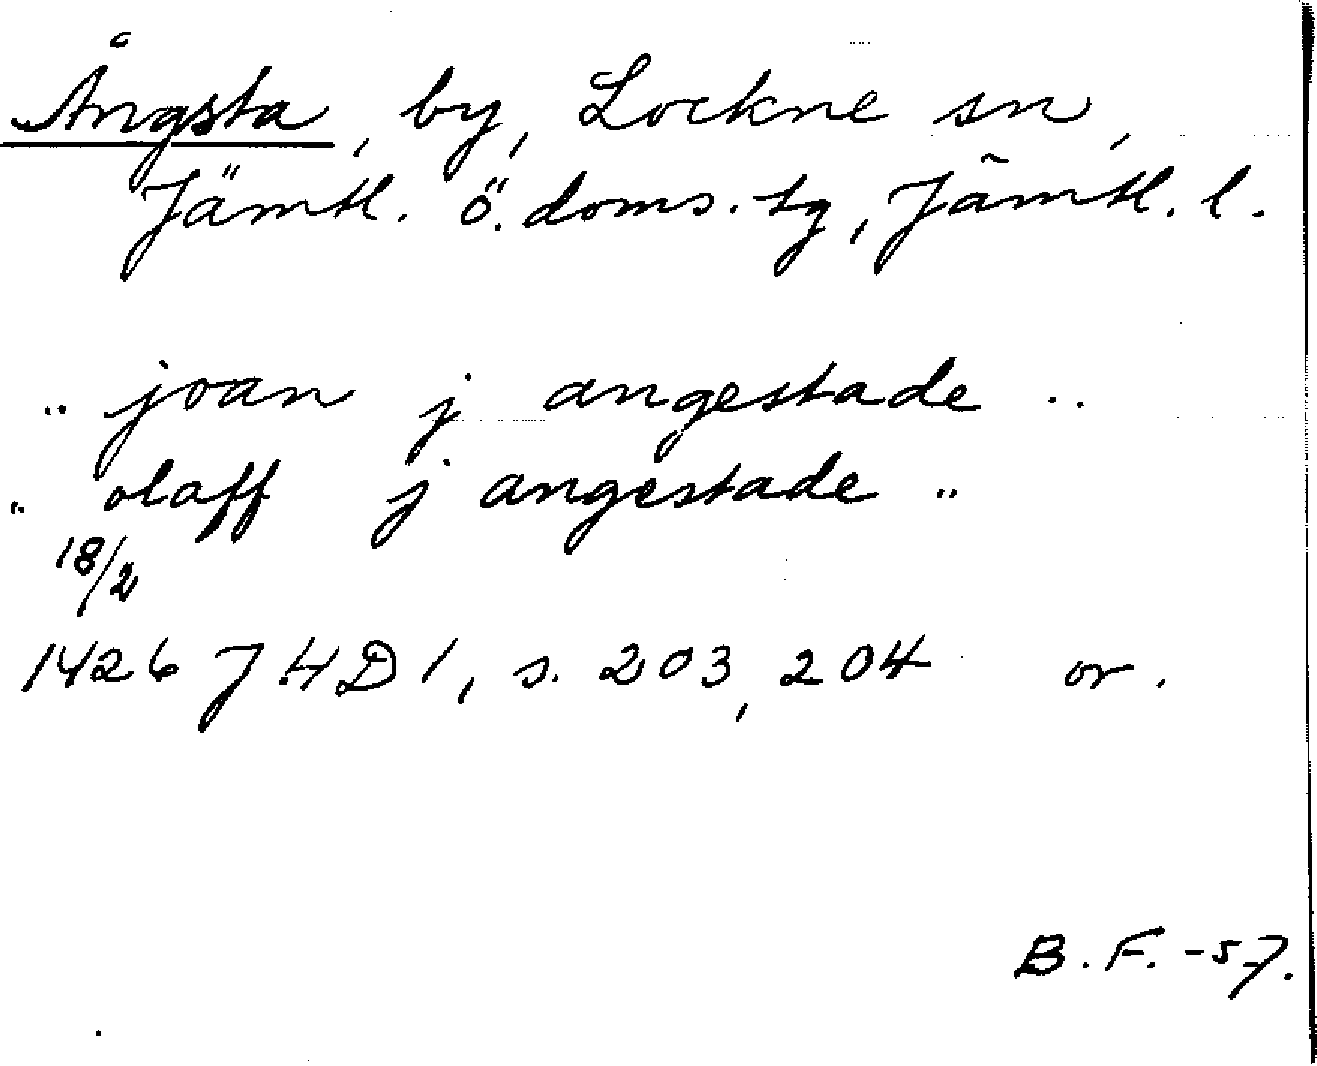 Ångsta, by, Lockne sn,
Jämtl. ö. doms. tg, Jämtl. l.
.. joan j angestade ..
.. olaff j angestade ..
18/2
1426 J H D 1, s. 203, 204 or.
B. F. -57.